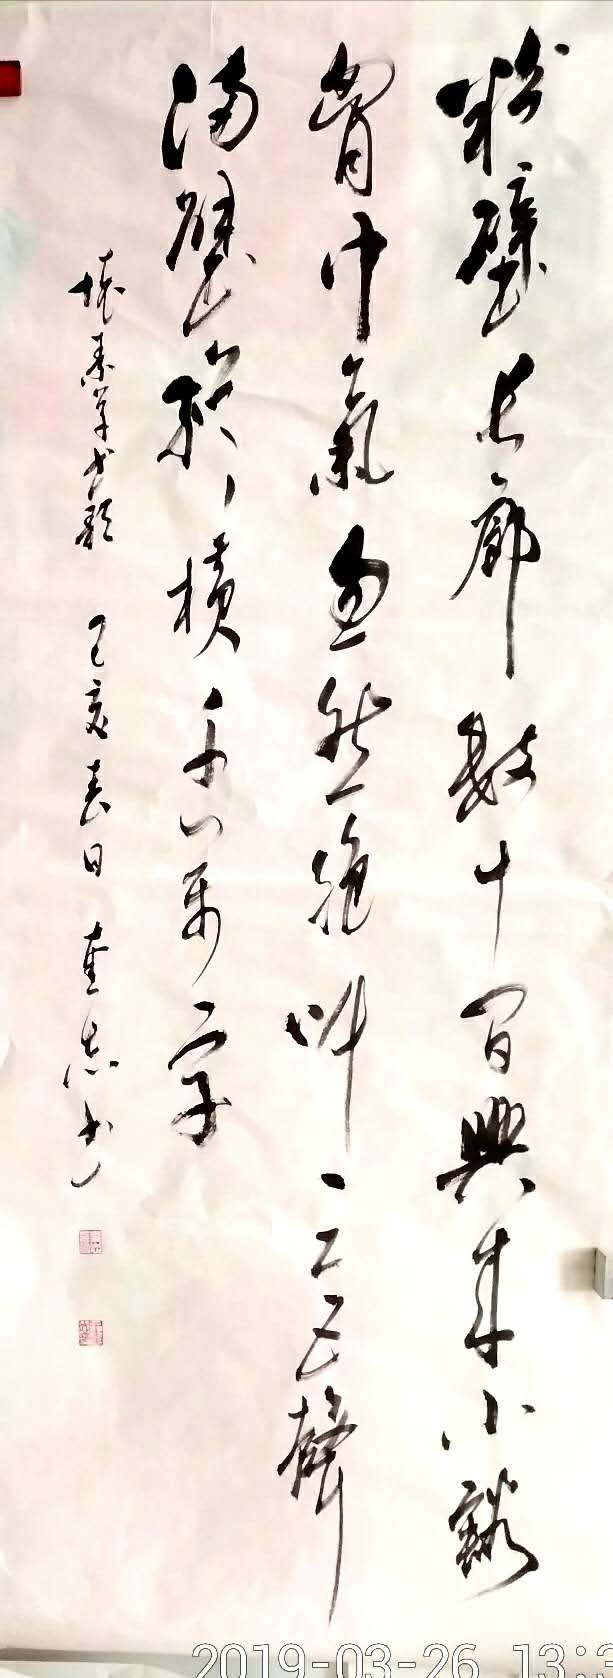 粉壁長廊數十間興來小豁
胷中氣忽然絕叫三五聲
滿壁縱橫千萬字
懷素草書歌 己亥春日 志書
2019-03-26 13:3